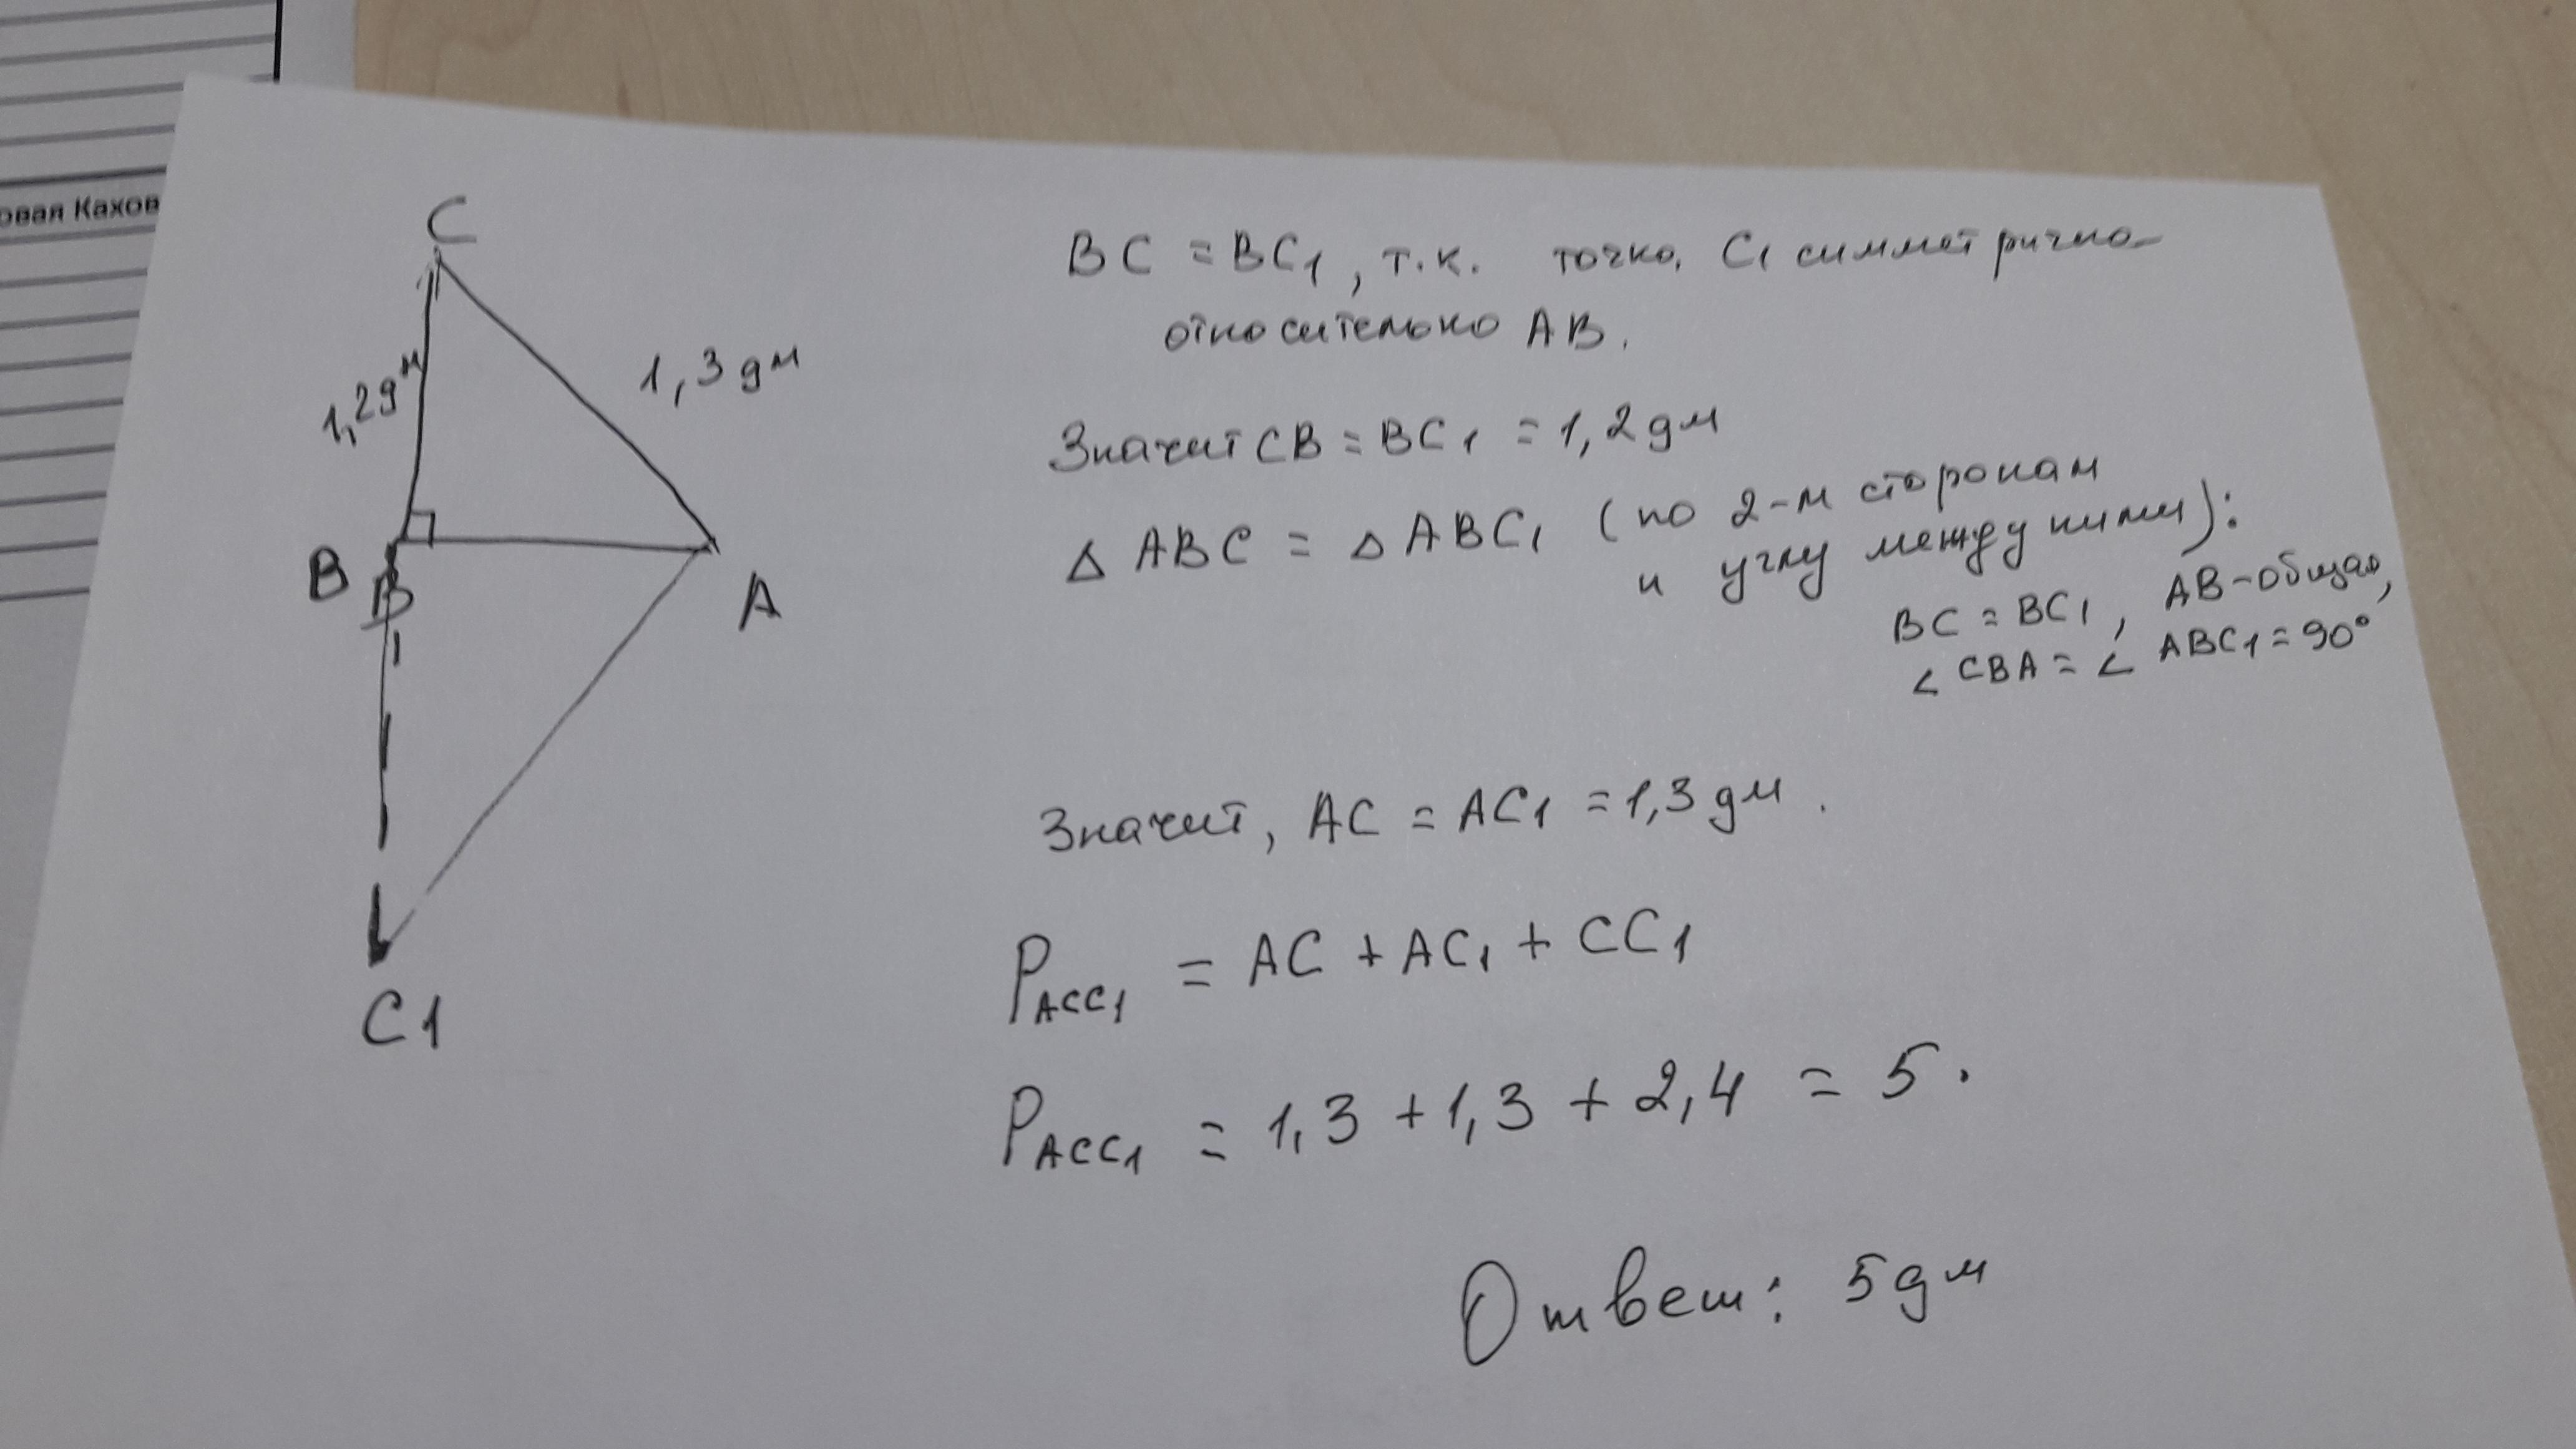 овая Кахов
C
1,2дм
1,3 дм
B
B
A
C1
BC = BC1, т.к. точка C1 симметрична
относительно AB.
Значит CB = BC1 = 1,2 дм
△ ABC = △ ABC1 (по 2-м сторонам
и углу между ними):
BC = BC1, AB-общая,
∠ CBA = ∠ ABC1 = 90°
Значит, AC = AC1 = 1,3 дм.
PACC1 = AC + AC1 + CC1
PACC1 = 1,3 + 1,3 + 2,4 = 5.
Ответ: 5 дм